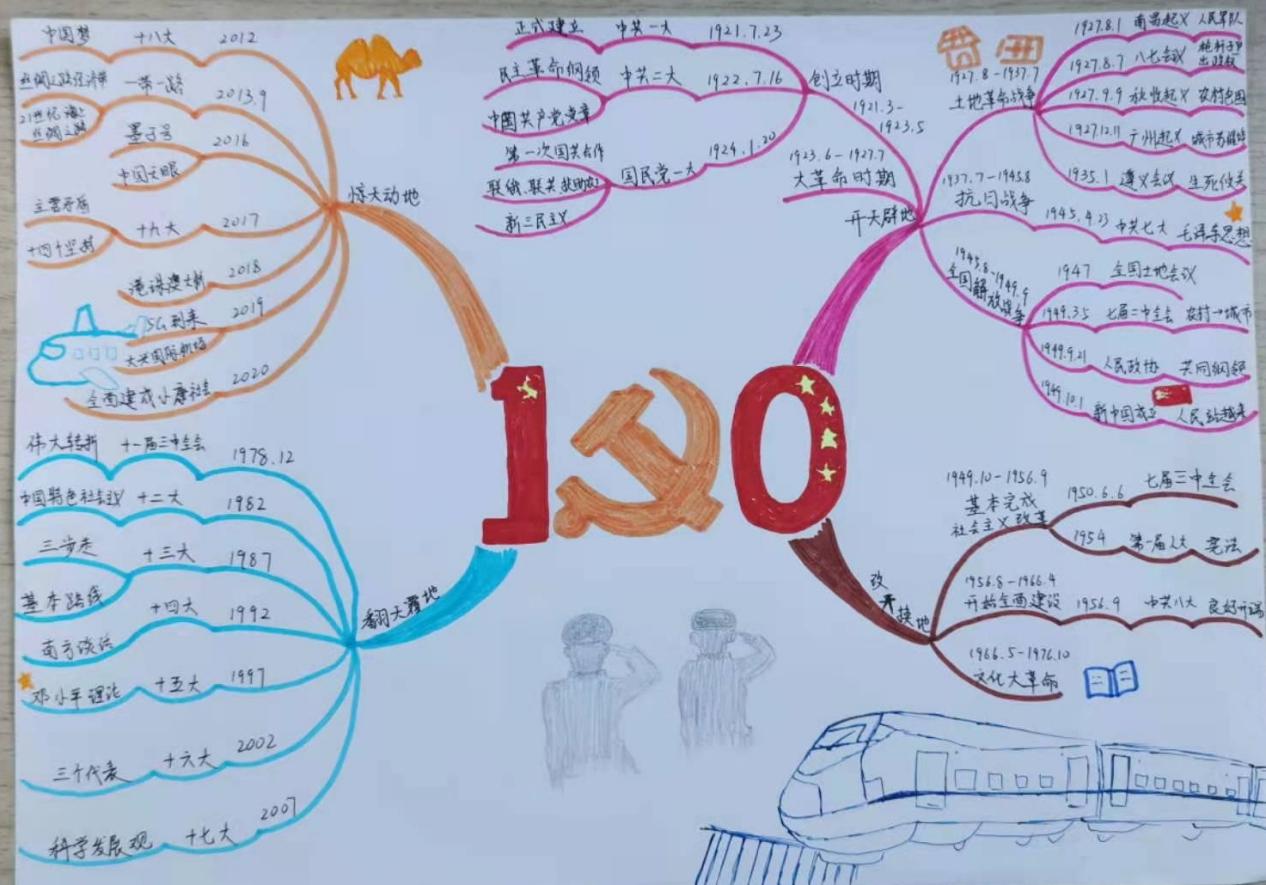 惊天动地
2012
十八大
中国梦
2013.9
一带一路
丝绸之路经济带
21世纪海上
丝绸之路
2016
墨子号
中国天眼
2017
十九大
主要矛盾
十四个坚持
2018
港珠澳大桥
2019
5G到来
大兴国际机场
2020
全面建成小康社会
开天辟地
创立时期
1921.3-
1923.5
1921.7.23
中共一大
正式建立
1922.7.16
中共二大
民主革命纲领
中国共产党党章
1923.6-1927.7
大革命时期
1924.1.20
国民党一大
第一次国共合作
联俄、联共、扶助农工
新三民主义
1927.8-1937.7
土地革命战争
1927.8.1 南昌起义 人民军队
1927.8.7 八七会议 枪杆子里
出政权
1927.9.9 秋收起义 农村包围
1927.12.11 广州起义
1935.1 遵义会议 生死攸关
1937.7-1945.8
抗日战争
1945.4.23 中共七大 毛泽东思想
1945.8-1949.9
全国解放战争
1947 全国土地会议
1949.3.5 七届二中全会 农村→城市
1949.9.21 人民政协 共同纲领
1949.10.1 新中国成立 人民站起来
100
翻天覆地
1978.12
十一届三中全会
伟大转折
1982
十二大
中国特色社会主义
1987
十三大
三步走
基本路线
1992
十四大
南方谈话
1997
十五大
邓小平理论
2002
十六大
三个代表
2007
十七大
科学发展观
改天换地
1949.10-1956.9
基本完成
社会主义改革
1950.6.6 七届三中全会
1954 第一届人大 宪法
1956.8-1966.4
开始全面建设
1956.9 中共八大 良好开端
1966.5-1976.10
文化大革命